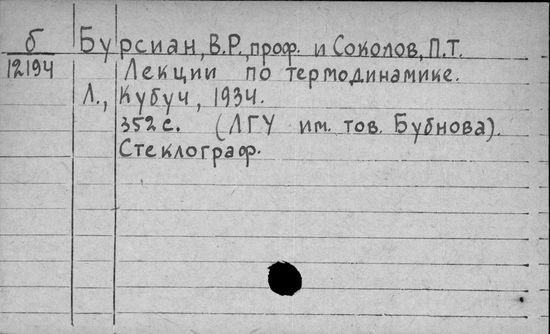 б Бурсиан, В.Р., проф. и Соколов, П.Т.
12194 Лекции по термодинамике.
Л., Кубуч, 1934.
352 с. (ЛГУ им. тов. Бубнова).
Стеклограф.